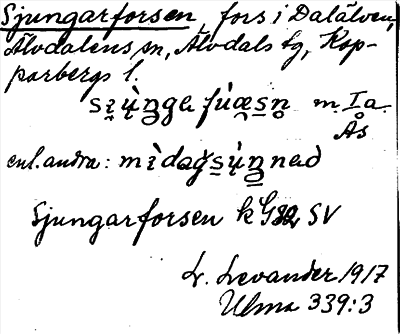 Sjungarforsen, fors i Dalälven,
Älvdalens sn, Älvdals tg, Kop-
parbergs l.
m. Ia.
Ås
enl. andra:
Sjungarforsen k G82 SV
L. Levander 1917
Ulma 339:3